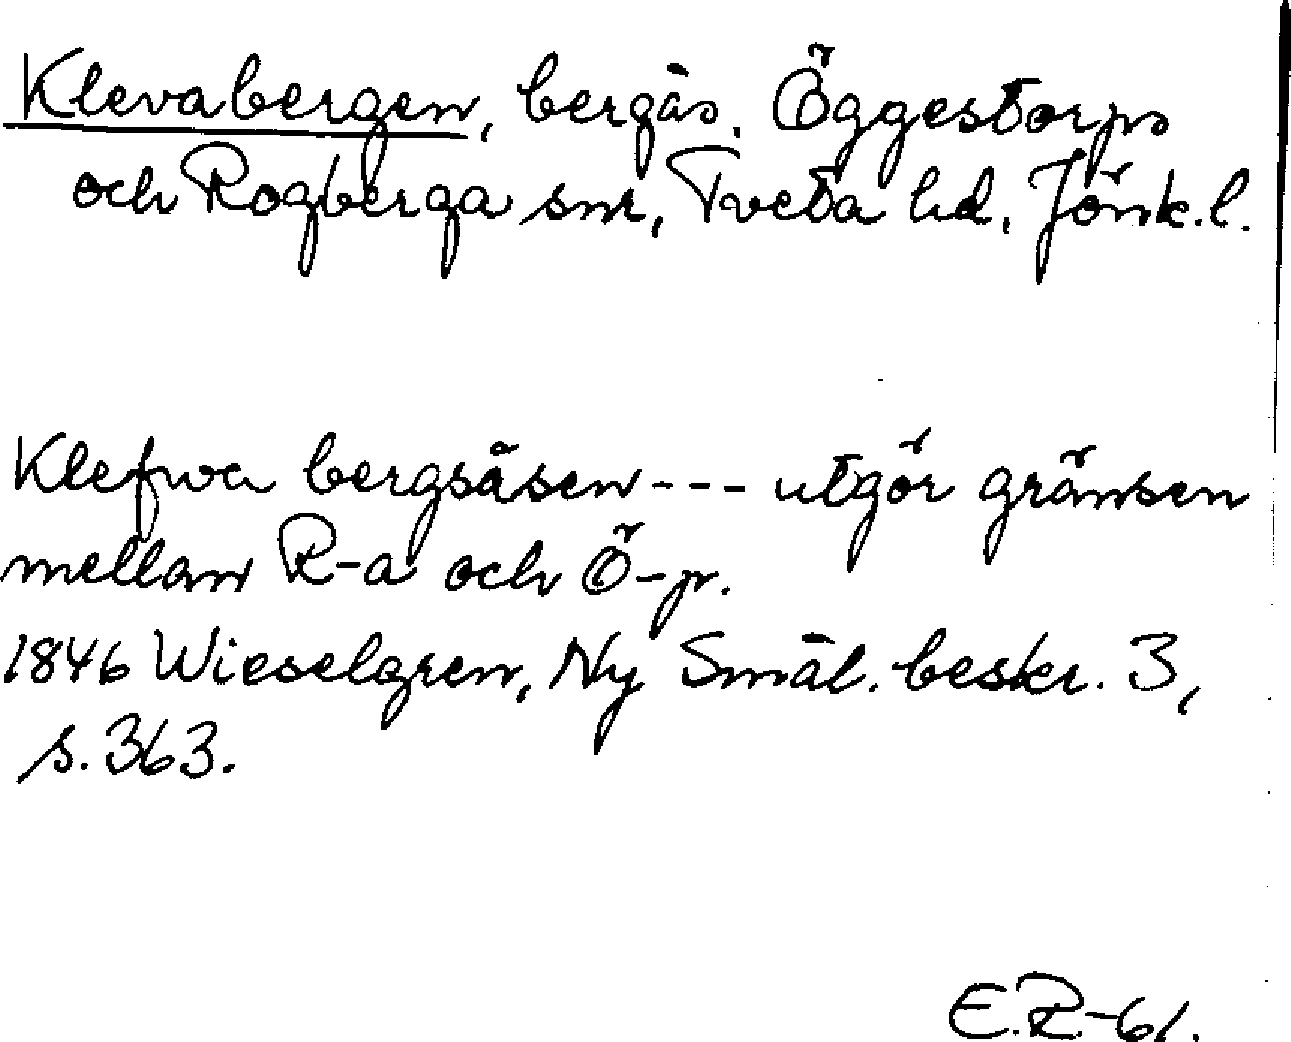 Klevabergen, bergås. Öggestorps
och Rogberga snr, Tveta hd, Jönk. l.
Klefwa bergsåsen --- utgör gränsen
mellan R-a och Ö-p.
1846 Wieselgren, Ny Smål. beskr. 3,
s. 363.
E.R-61.